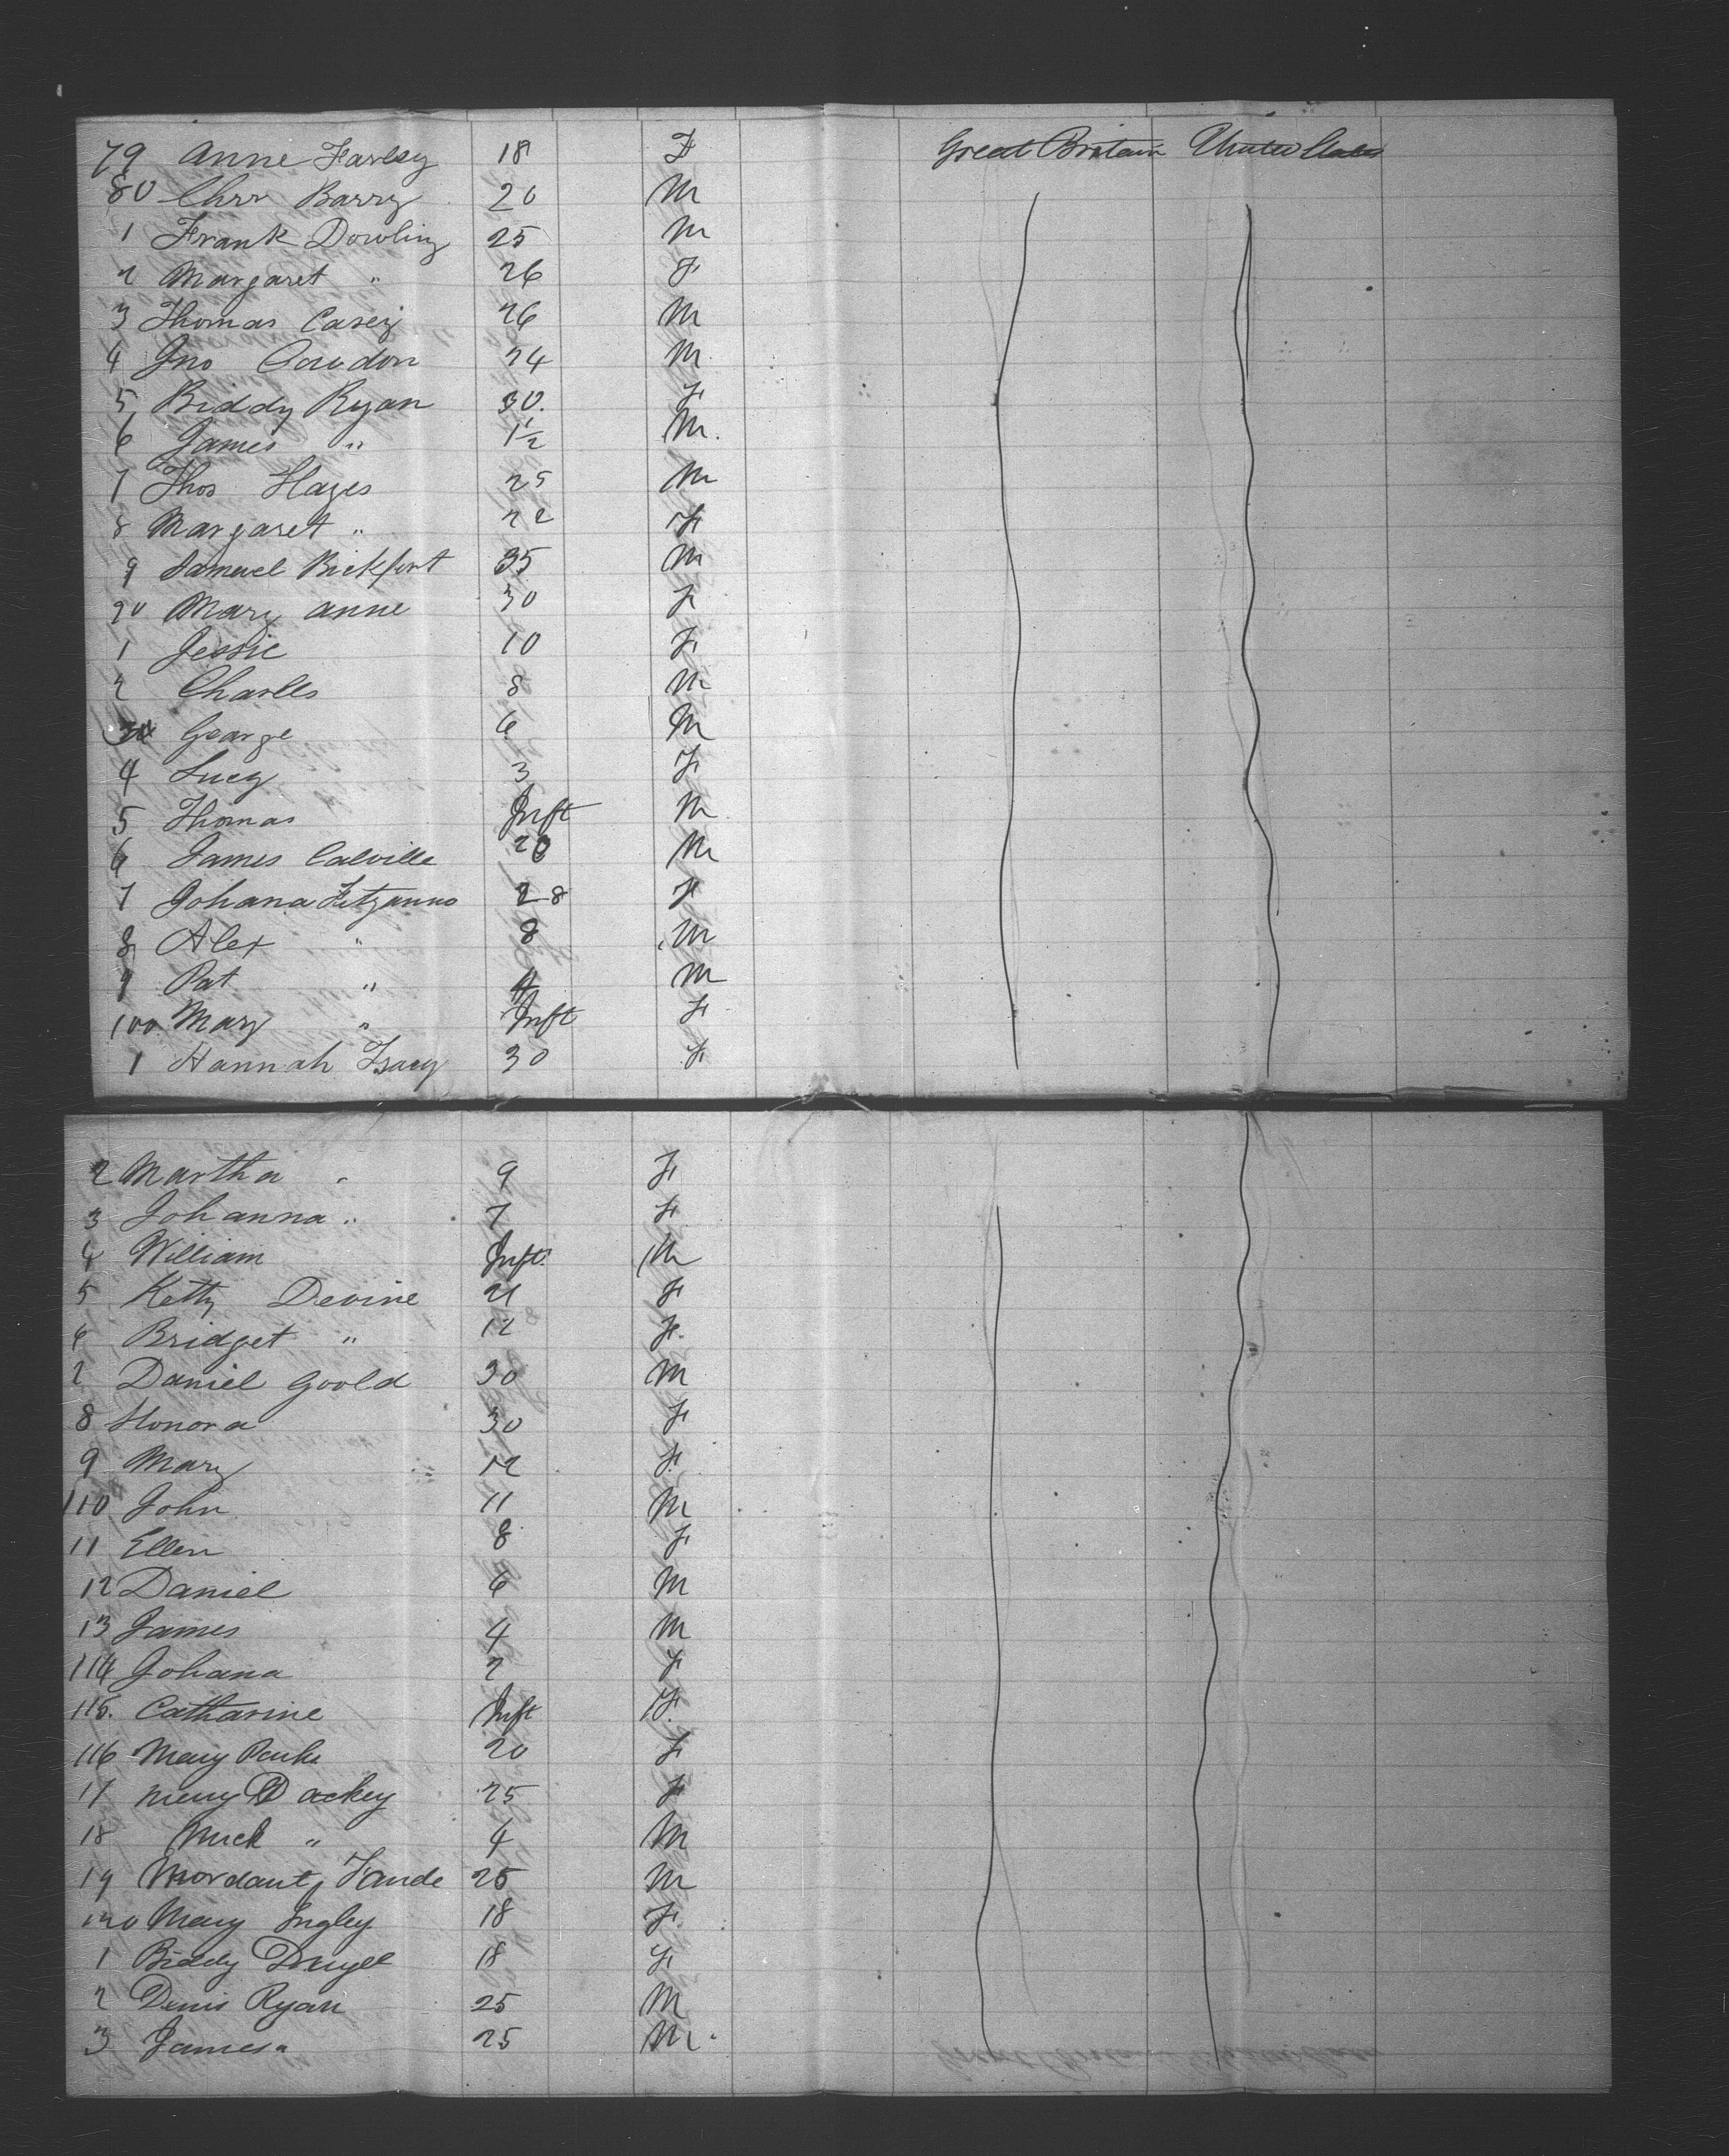 79 Anne Farley 18 F Great Britain United States
80 Chrr Barry 20 M
1 Frank Dowling 25 M
2 Margaret " 26 F
3 Thomas Casey 26 M
4 Jno Condon 24 M
5 Biddy Ryan 30. F
6 James " 1½ M.
7 Thos Hayes 25 M
8 Margaret " 22 F
9 Samuel Bickfort 35 M
90 Mary anne 30 F
1 Jessie 10 F
2 Charles 8 M
3 George 6 M
4 Lucy 3 F
5 Thomas Inft M
6 James Calville 20 M
7 Johana 28 F
8 Alex " 8 M
9 Pat " 4 M
100 Mary " Inft F
1 Hannah 30 F
2 Martha " 9 F
3 Johanna " 7 F
4 William Inft M
5 Ketty Devine 21 F
6 Bridget " 12 F.
7 Daniel Goold 30 M
8 Honora 30 F
9 Mary 12 F.
110 John 11 M
11 Ellen 8 F
12 Daniel 6 M
13 James 4 M
114 Johana 2 F
115. Catharine Inft F.
116 Mary 20 F
17 Mary Dackey 25 F
18 Mick " 4 M
19 Mordaunt 25 M
120 Mary Ingley 18 F.
1 Biddy 18 F
2 Denis Ryan 25 M
3 James " 25 M.